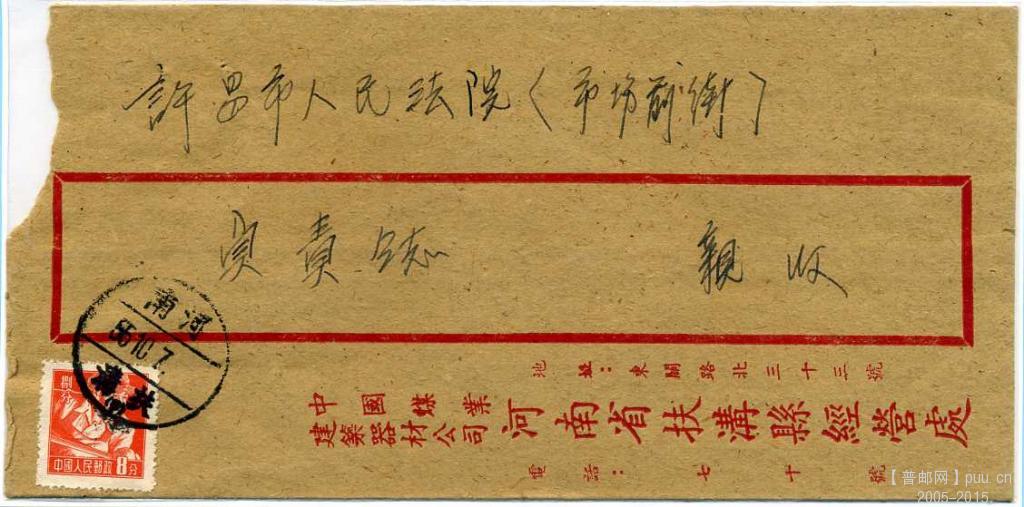 許昌市人民法院（市場前街）
負責同志 親收
南河
56.10.7
扶溝
捌分
中國人民郵政 8分
地址：東關路北三十三號
中國煤業
建築器材公司
河南省扶溝縣經營處
電話：七十號
【普邮网】puu.cn
2005-2015.